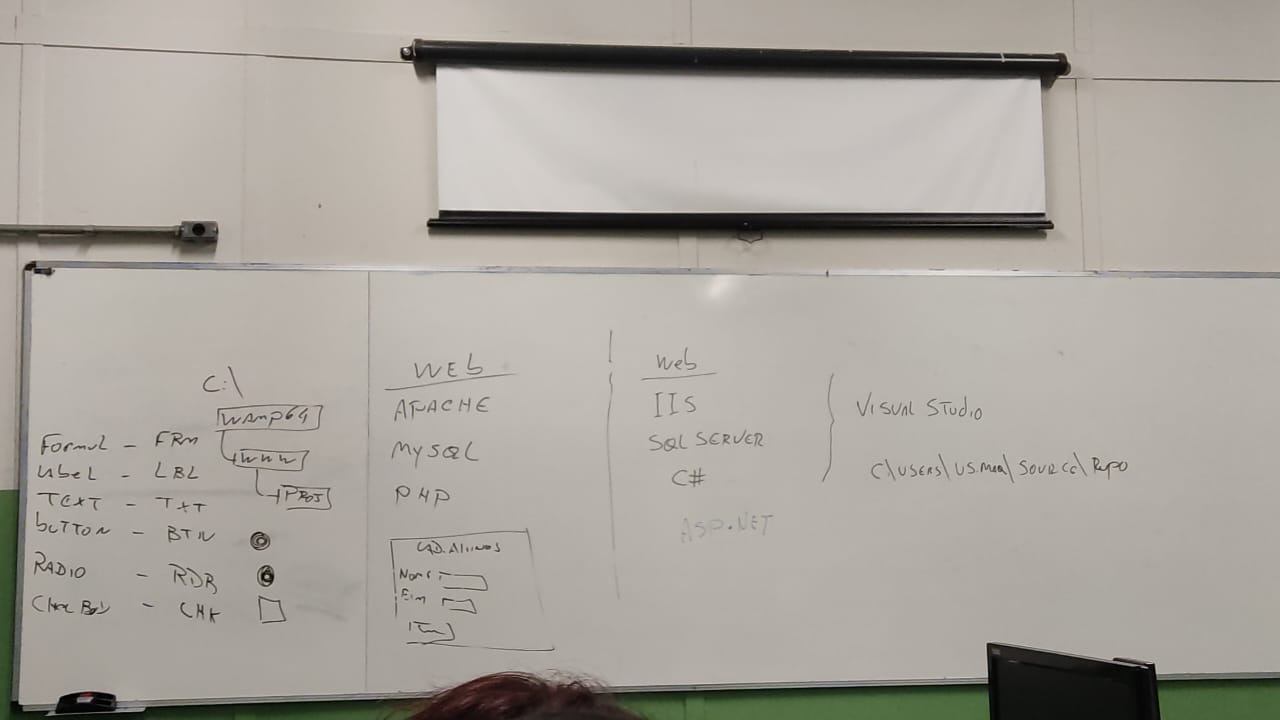 C:\
WAMP64
WWW
PROJ
FORMUL - FRM
LABEL - LBL
TEXT - TXT
BUTTON - BTN
RADIO - RDB
- CHK
WEB
APACHE
MySQL
PHP
CAD. ALUNOS
Nome
Web
IIS
SQL SERVER
C#
ASP.NET
VISUAL STUDIO
C\USERS\ \SOURCE\Repo